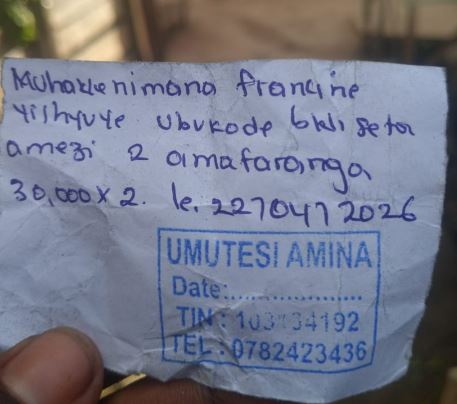 Muhawenimana francine
yishyuye ubukode bwi seta
amezi 2 amafaranga
30,000 x 2. le. 22704712026
UMUTESI AMINA
Date:....................
TIN : 103134192
TEL : 0782423436